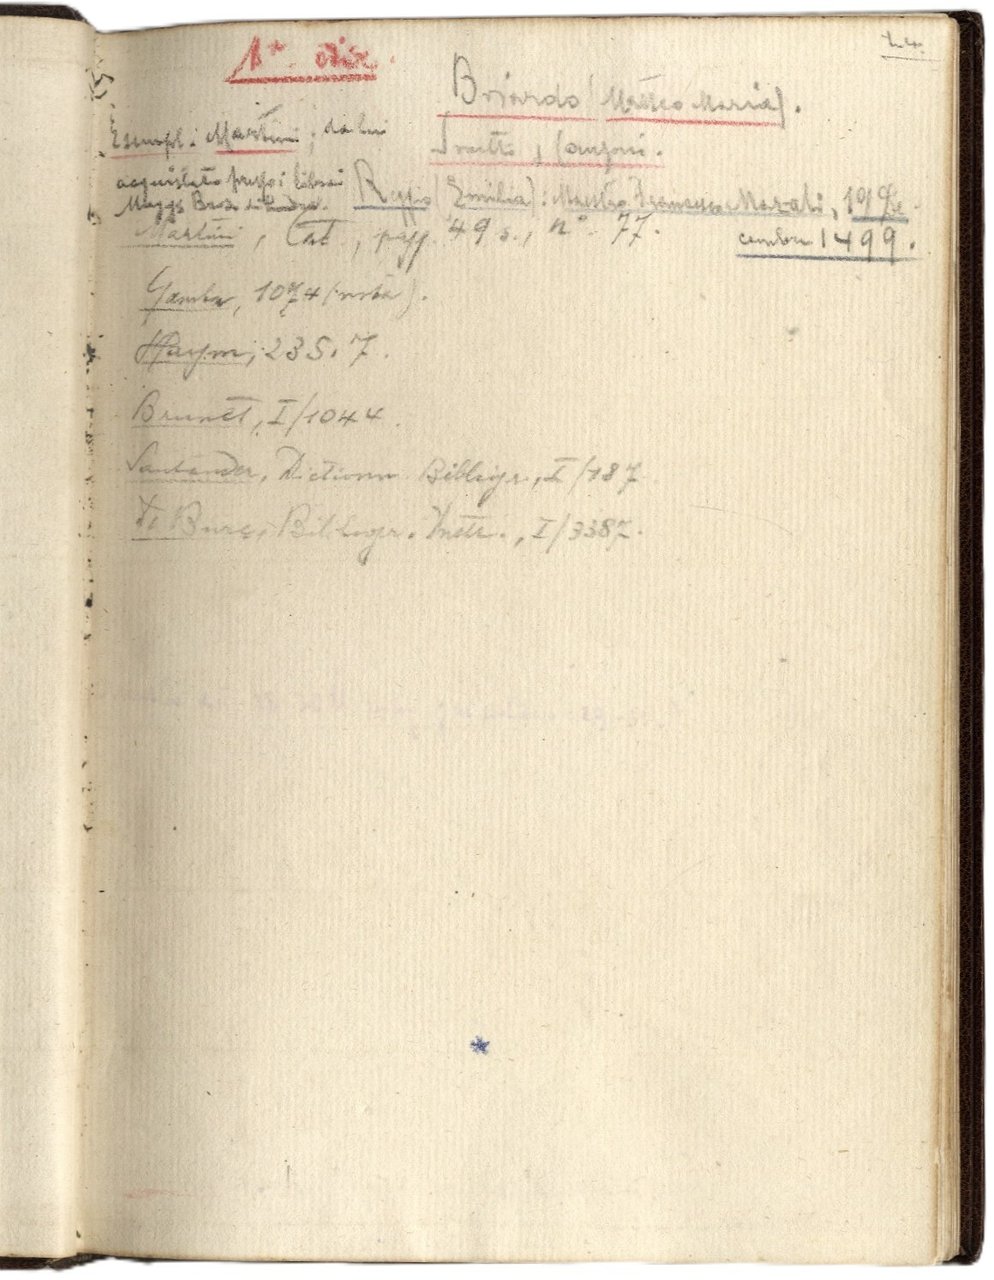 1ª ediz.
Boiardo (Matteo Maria).
Esempl. Martini; da lui
Sonetti e Canzoni.
acquistato presso i librai
Maggs Bros. di Londra.
Reggio (Emilia): Maestro Francesco Mazali, 19 De-
cembre 1499.
Martini, Cat., pagg. 49 s., nº. 77.
Gamba, 1074 (nota).
Haym, 235.7.
Brunet, I/1044.
Santander, Dictionn. Bibliogr., I/187
De Bure, Bibliogr. Instr., I/3387.